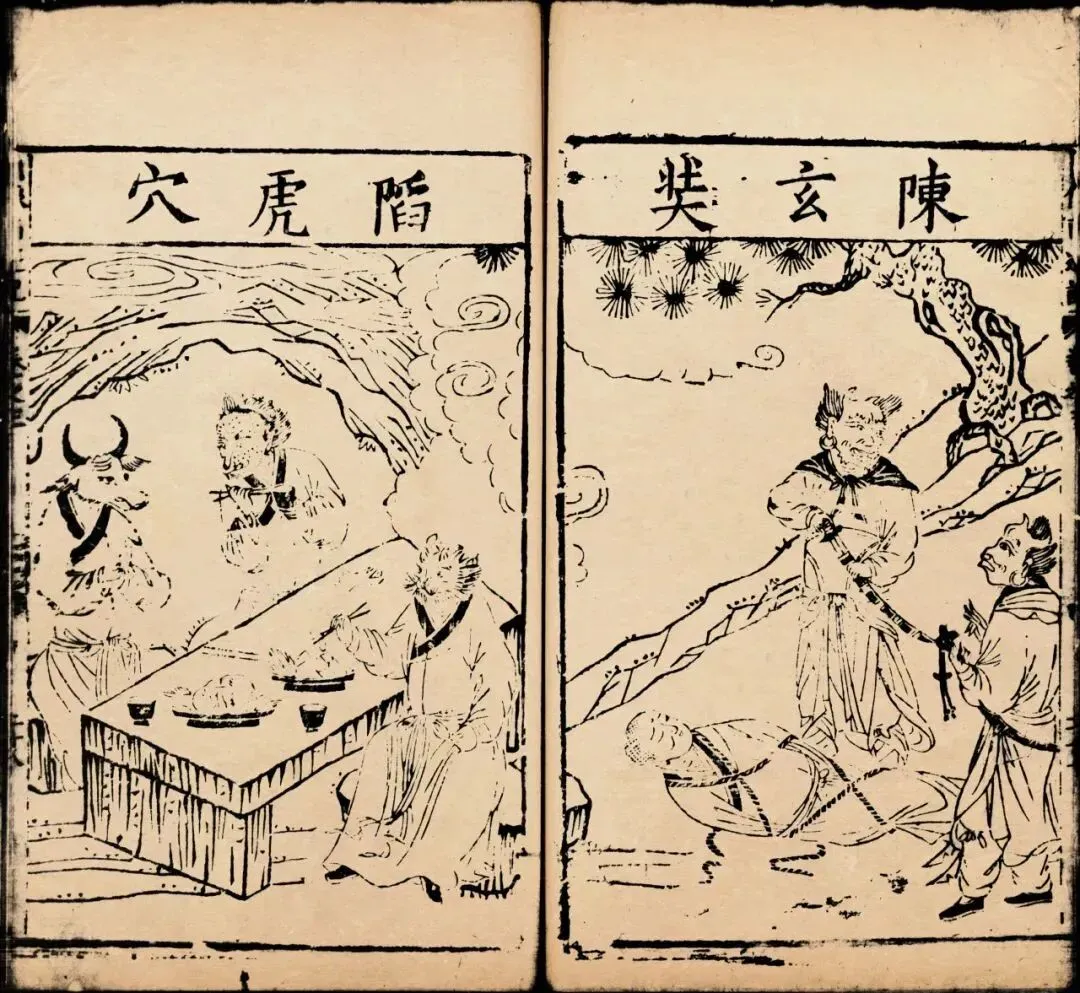 陳玄奘
陷虎穴